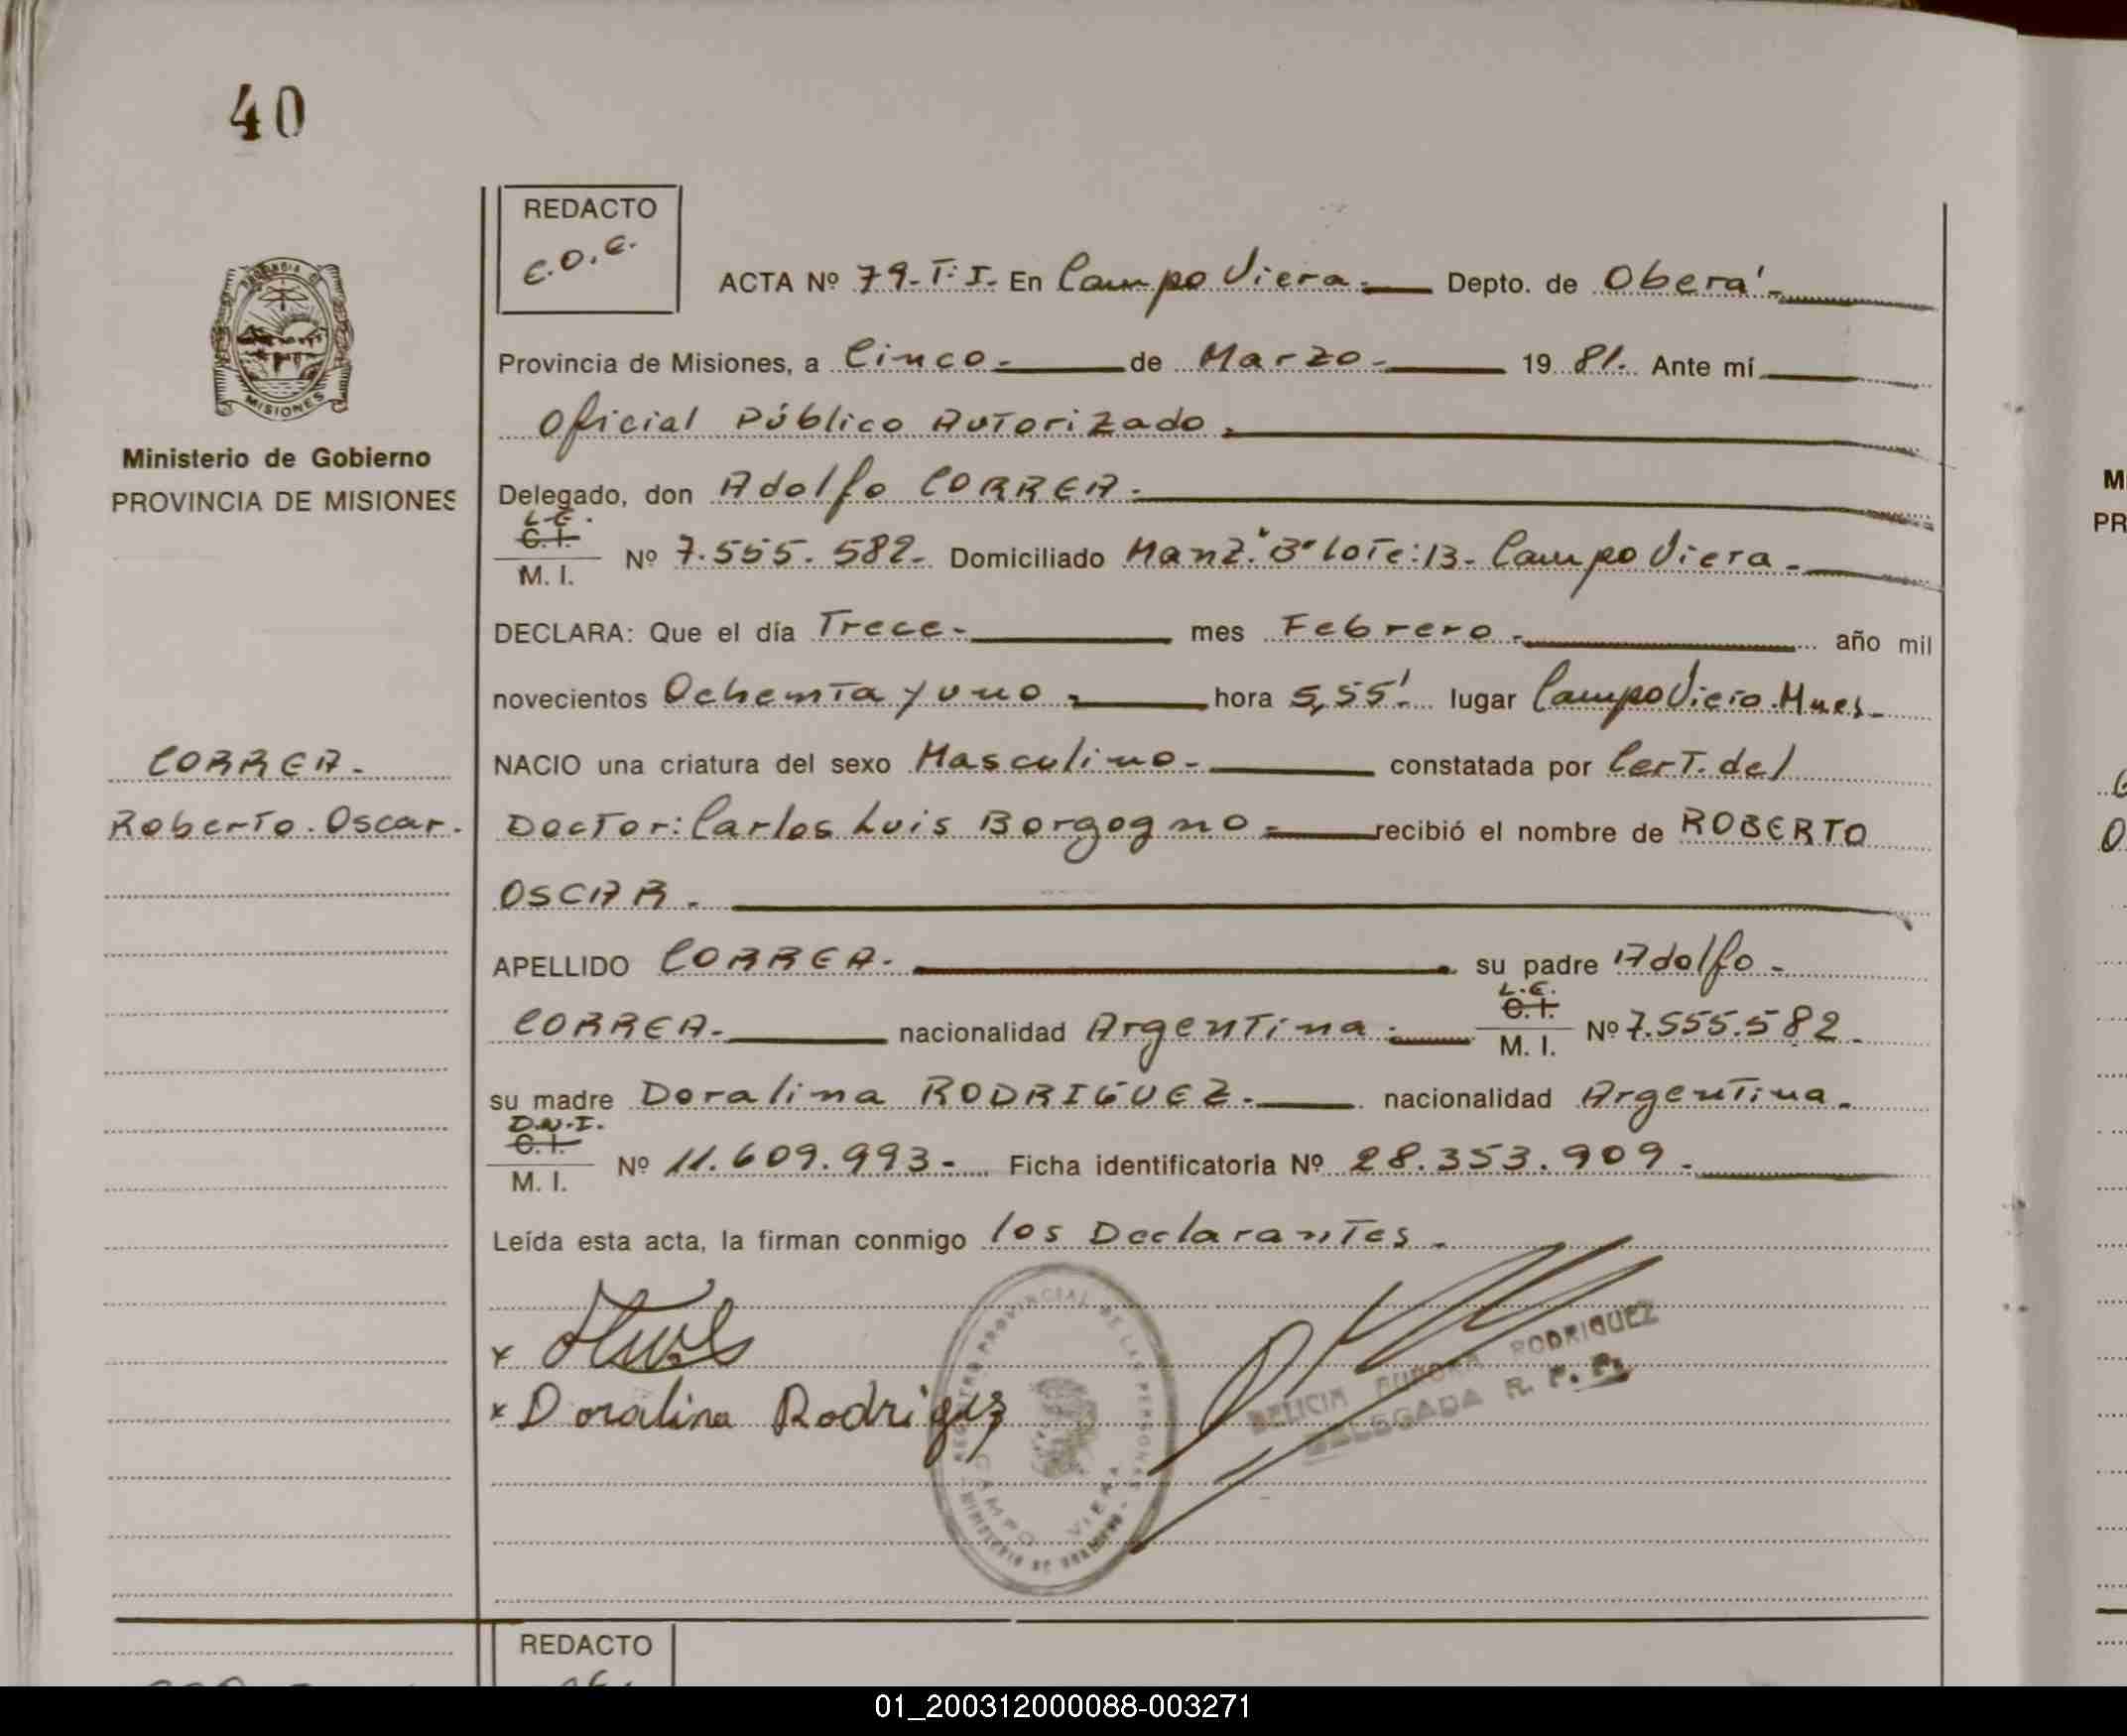 40
REDACTO
C.O.C.
ACTA Nº 79-T:I- En Campo Viera.- Depto. de Oberá-
Provincia de Misiones, a Cinco- de Marzo- 19 81. Ante mí
Oficial Público Autorizado.
Ministerio de Gobierno
PROVINCIA DE MISIONES
MISIONES
Delegado, don Adolfo CORREA-
L.E.
C.I.
M. I. Nº 7.555.582- Domiciliado Manz."B" Lote:13- Campo Viera-
DECLARA: Que el día Trece- mes Febrero- año mil
novecientos Ochenta y uno- hora 5,55' lugar Campo Viera. Mnes-
CORREA-
NACIO una criatura del sexo Masculino- constatada por Cert. del
Roberto. Oscar.
Doctor: Carlos Luis Borgogno- recibió el nombre de ROBERTO
OSCAR-
APELLIDO CORREA- su padre Adolfo-
CORREA- nacionalidad Argentina.-
L.E.
C.I.
M. I. Nº 7.555.582-
su madre Doralina RODRIGUEZ- nacionalidad Argentina-
D.N.I.
C.I.
M. I. Nº 11.609.993- Ficha identificatoria Nº 28.353.909-
Leída esta acta, la firman conmigo los Declarantes-
x
x Doralina Rodriguez
REGISTRO PROVINCIAL DE LAS PERSONAS
CAMPO VIERA
MINISTERIO DE GOBIERNO
DELICIA AURORA RODRIGUEZ
DELEGADA R. P. P.
REDACTO
M
PR
01_200312000088-003271